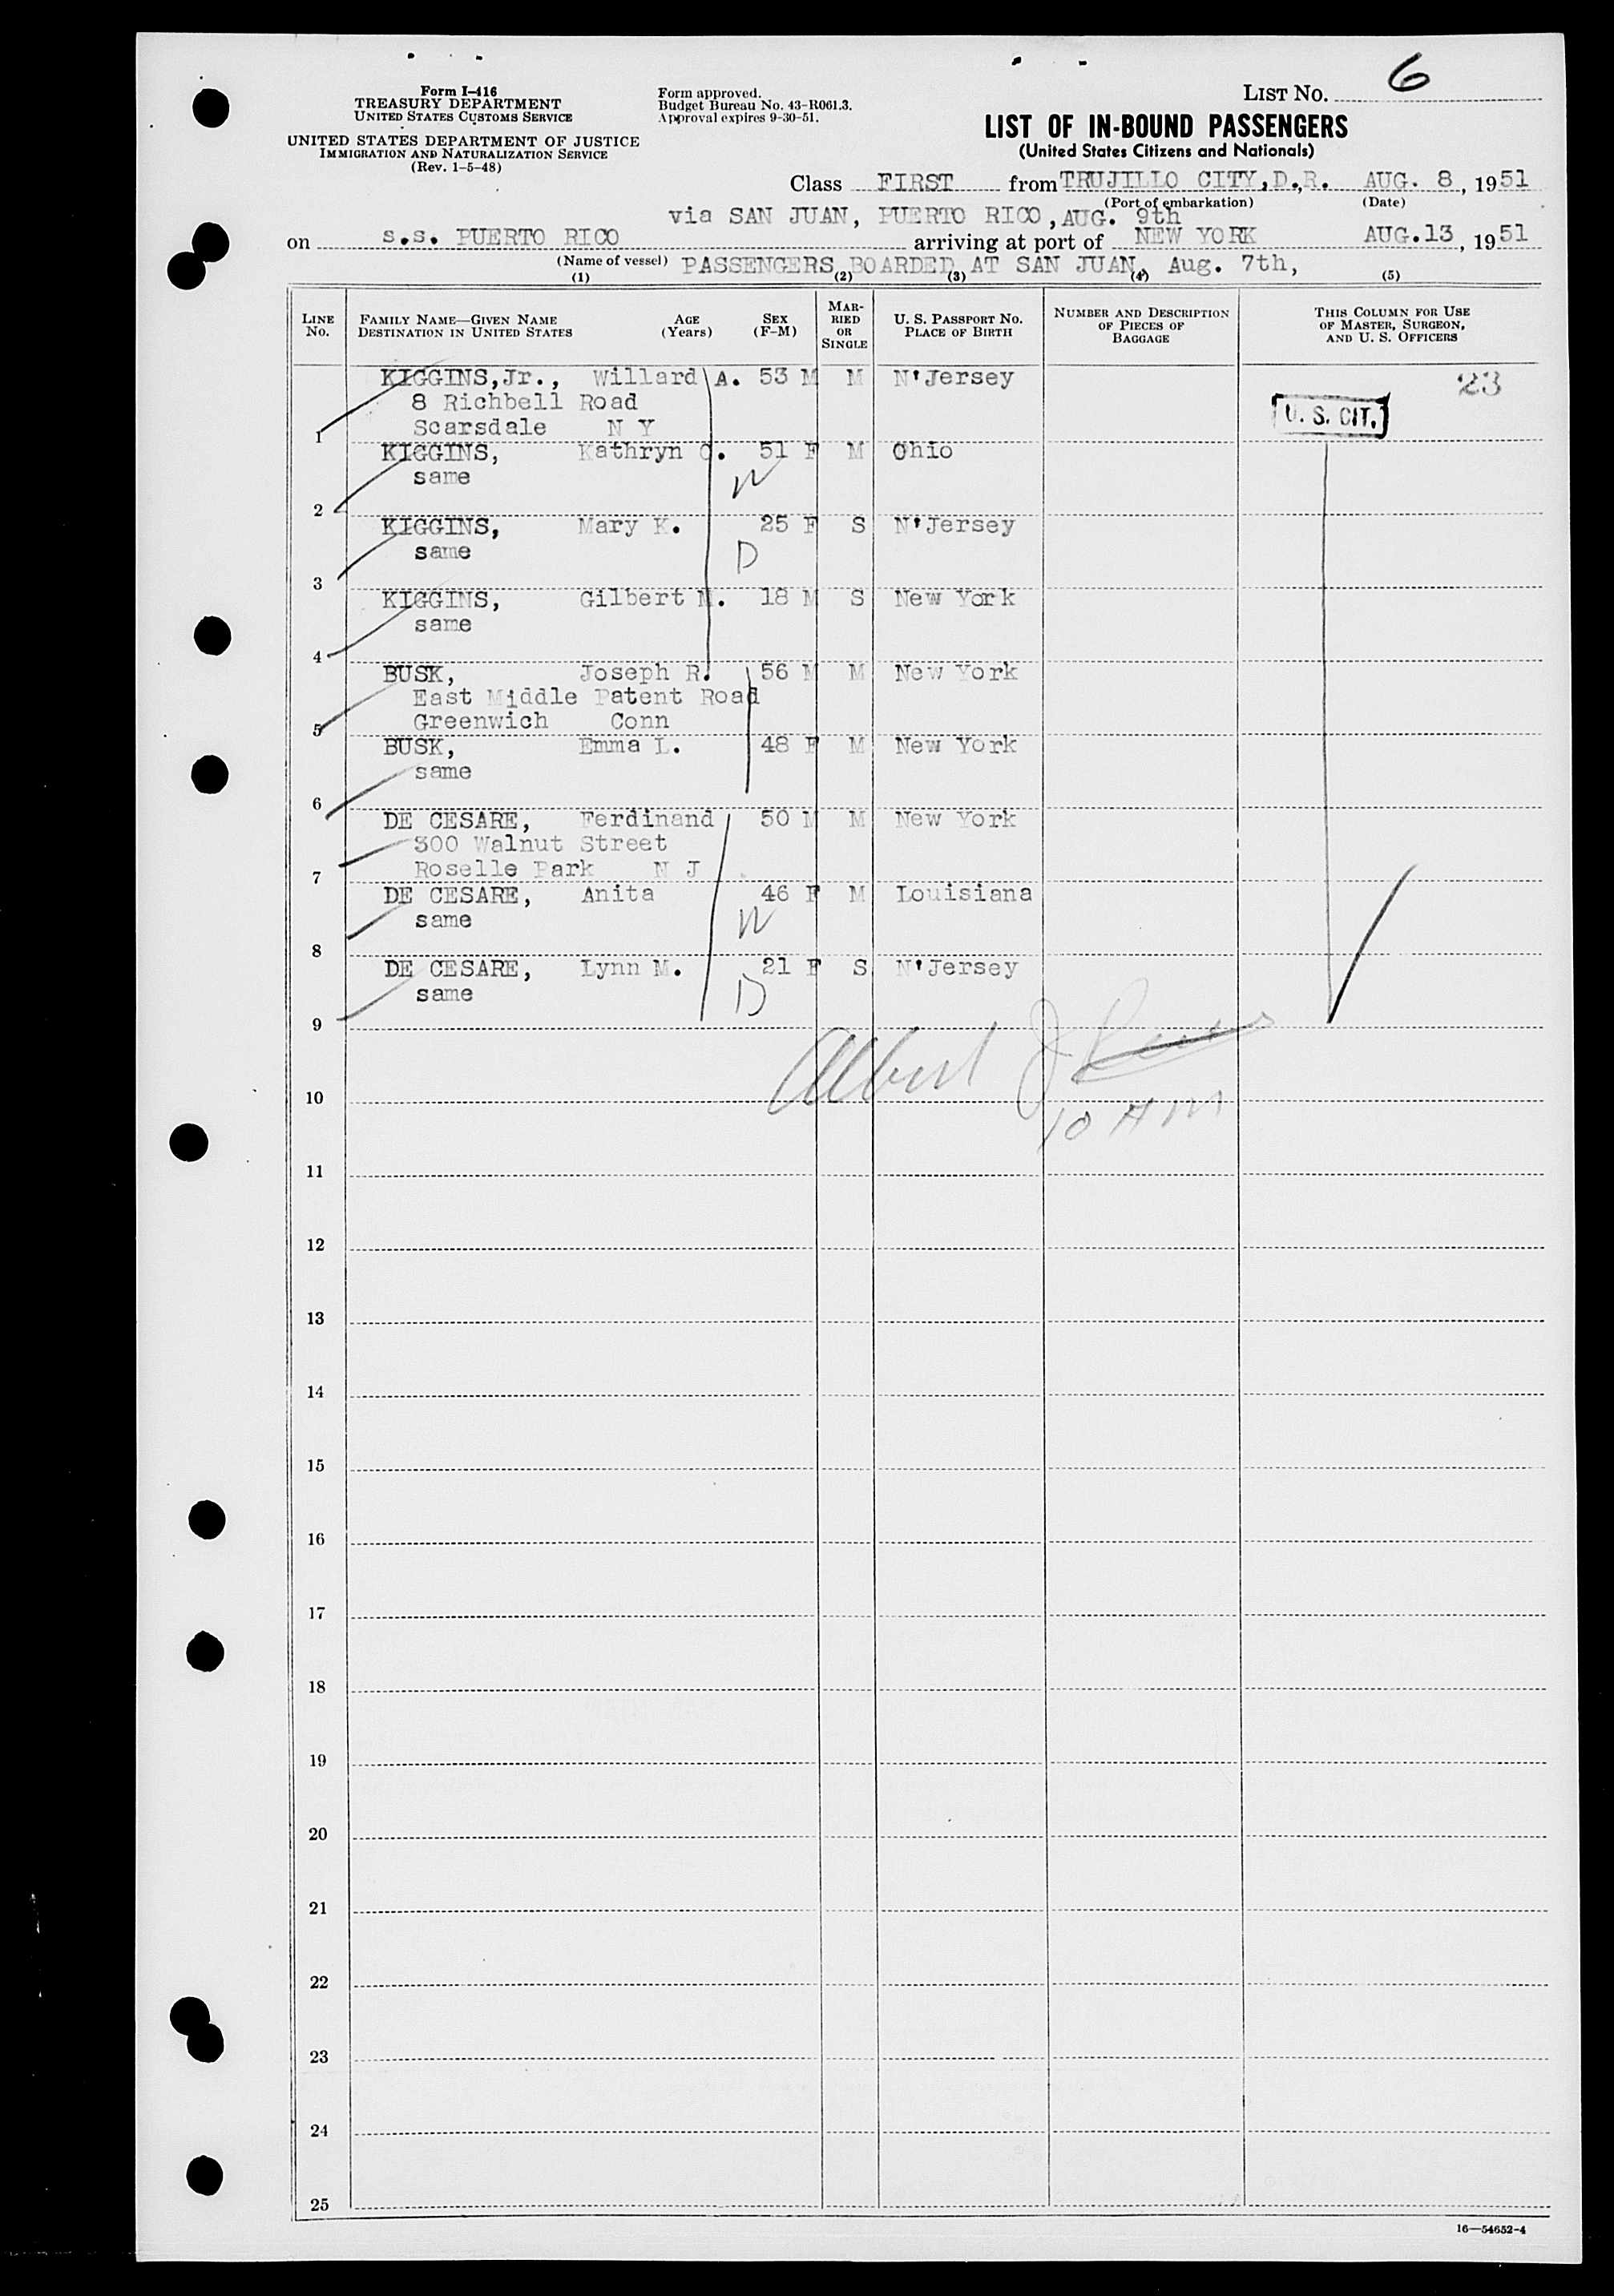 Form I-416
TREASURY DEPARTMENT
UNITED STATES CUSTOMS SERVICE
UNITED STATES DEPARTMENT OF JUSTICE
IMMIGRATION AND NATURALIZATION SERVICE
(Rev. 1-5-48)
Form approved.
Budget Bureau No. 43-R061.3.
Approval expires 9-30-51.
LIST No. 6
LIST OF IN-BOUND PASSENGERS
(United States Citizens and Nationals)
Class FIRST from TRUJILLO CITY, D.R. AUG. 8, 1951
(Port of embarkation) (Date)
via SAN JUAN, PUERTO RICO, AUG. 9th
on s.s. PUERTO RICO arriving at port of NEW YORK AUG.13, 1951
(Name of vessel) PASSENGERS BOARDED AT SAN JUAN, Aug. 7th,
(1) (2) (3) (4) (5)
LINE No. FAMILY NAME—GIVEN NAME DESTINATION IN UNITED STATES AGE (Years) SEX (F-M) MARRIED OR SINGLE U. S. PASSPORT No. PLACE OF BIRTH NUMBER AND DESCRIPTION OF PIECES OF BAGGAGE THIS COLUMN FOR USE OF MASTER, SURGEON, AND U. S. OFFICERS
KIGGINS,Jr., Willard A. 53 M M N'Jersey 23
8 Richbell Road U. S. CIT.
1 Scarsdale N Y
KIGGINS, Kathryn C. 51 F M Ohio
same W
2
KIGGINS, Mary K. 25 F S N'Jersey
same D
3
KIGGINS, Gilbert M. 18 M S New York
same
4
BUSK, Joseph R. 56 M M New York
East Middle Patent Road
5 Greenwich Conn
BUSK, Emma L. 48 F M New York
same
6
DE CESARE, Ferdinand 50 M M New York
300 Walnut Street
7 Roselle Park N J
DE CESARE, Anita 46 F M Louisiana
same W
8
DE CESARE, Lynn M. 21 F S N'Jersey
same D
9
Albert J
10 10 AM
11
12
13
14
15
16
17
18
19
20
21
22
23
24
25
16—54652-4